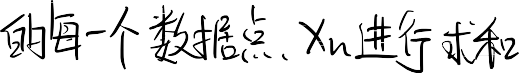 的每一个数据点、Xn进行求和